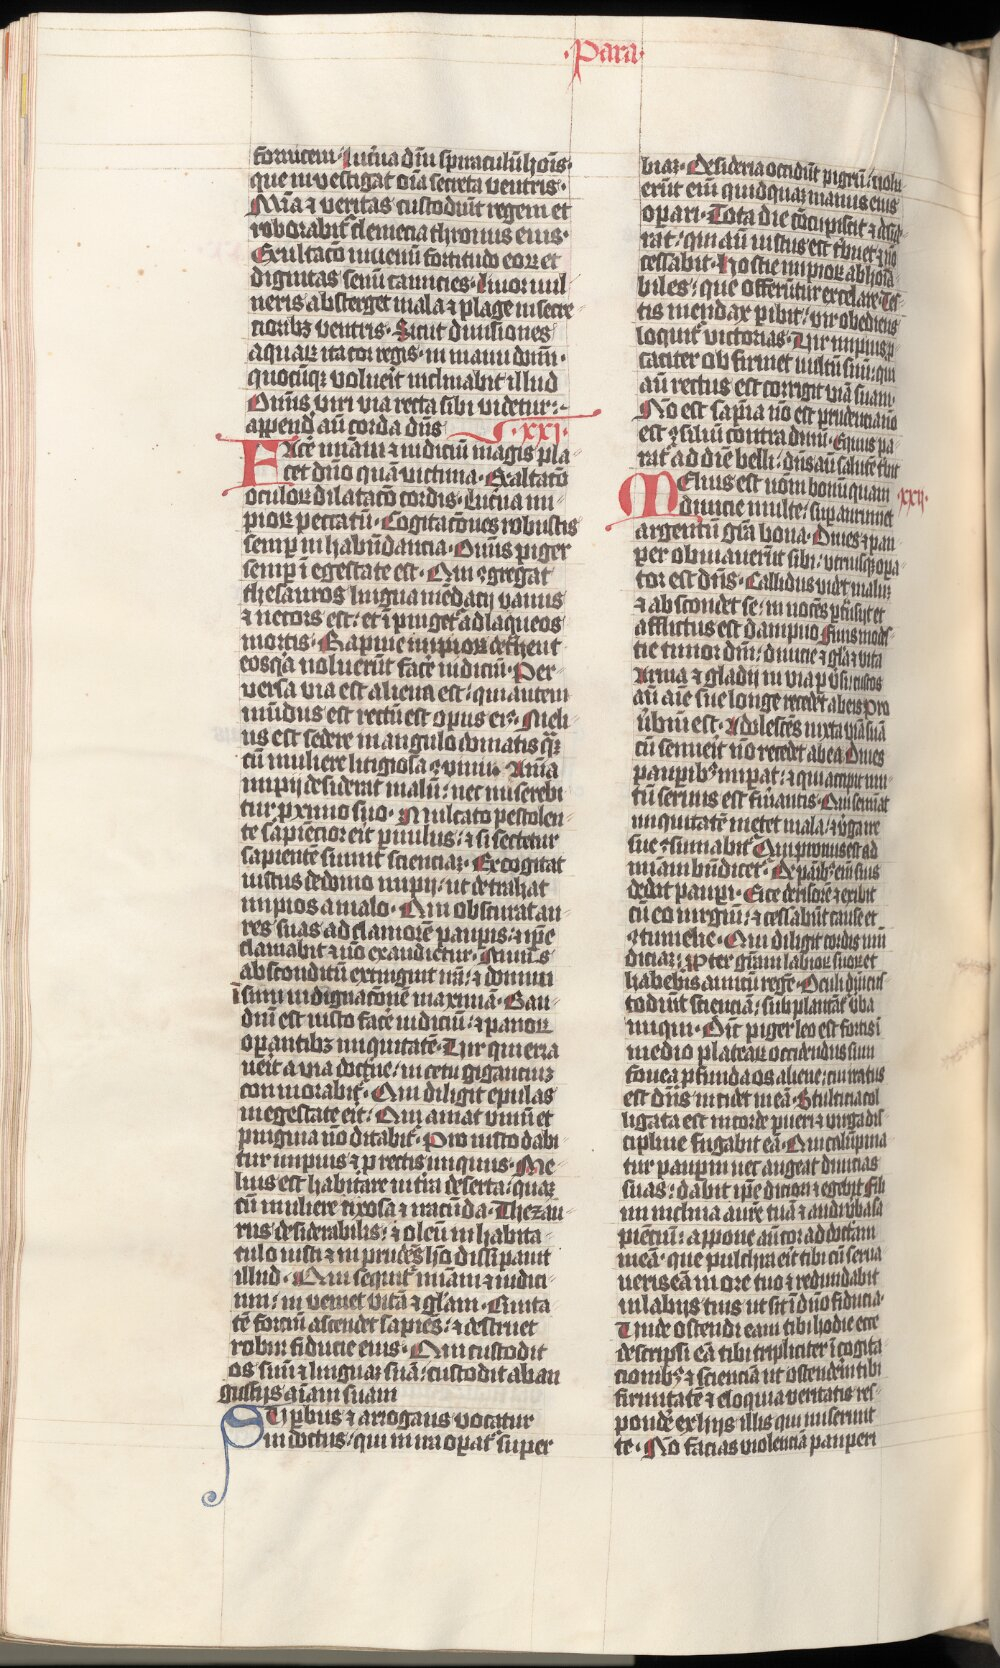 ·Para·
fornicem· Lucna dni spiraculū hoīs·
que investigat oīa secreta ventris·
Mīa ⁊ veritas custodiūt regem et
roborabit᷑ clemēcia thronus eius·
Exultacō iuuenū fortitudo eoꝝ et
dignitas senū canicies· Liuor vul
neris absterget mala ⁊ plage in secre
cioribꝫ ventris· Sicut diuisiones
aquaꝝ ita cor regis· in manu domi·
quocūqꝫ voluerit inclinabit illud
Omīs viri via recta sibi videtur·
appendᷓ aū corda dn̄s ·xxi·
Facē mīam ⁊ iudiciū magis pla
cet dn̄o quā victima· Exaltacō
oculoꝝ dilatacō cordis· lucna im
pioꝝ peccatū· Cogitacōnes robustis
semꝑ in habūdancia· Omīs piger
semꝑ ī egestate est· Qui ꝯgregat
thesauros lingua mēdacij vanus
⁊ uecors est· et īpinget᷑ ad laqueos
mortis· Rapine impioꝝ detrahent
eos qꝛ noluerūt facē iudiciū· Per
versa via est aliena est· qui autem
mūdus est rectū est opus eiꝰ· Meli
us est sedere in angulo domatis qᷓꝫ
cū muliere litigiosa ꝯviuio· Anīa
impij desiderat malū· nec miserebi
tur ꝓximo suo· Mulcato pestolen
te sapiēcior erit puulus· ⁊ si sectetur
sapientē sumit scienciaꝫ· Excogitat
iustus de domo impij· ut detrahat
impios a malo· Qui obturat au
res suas ad clamorē pauꝑis· ⁊ ip̄e
clamabit ⁊ nō exaudietur· Munꝰ
absconditū extingwit iras· ⁊ donum
ī sinu indignacōnē maximā· Gau
diū est iusto facē iudiciū· ⁊ pauoꝝ
oꝑantibꝫ iniquitatē· Vir qui erra
uerit a via doctrine· in cetu gigantuꝫ
commorabit᷑· Qui diligit epulas
in egestate erit· Qui amat vinū et
pinguia nō ditabit᷑· Pro iusto dabi
tur impius ⁊ ꝓ rectis iniquus· Me
lius est habitare in tīra deserta· quaꝫ
cū muliere rixosa ⁊ iracūda· Thezau
rus desiderabilis· ⁊ oleū in habita
culo iusti ⁊ in prudēs hō dissipauit
illud· Qui sequit᷑ mīam ⁊ iudici
um· in veniet vitā ⁊ glāam· Ciuita
tē fortiū ascendet sapiēs· ⁊ destruet
robur fiducie eius· Qui custodit
os suū ⁊ linguaꝫ suā· custodit ab an
gustijs aīam suam
SUꝑbus ⁊ arrogans vocatur
in doctus· qui in ira oꝑat᷑ super
biaꝫ· Desideria occidūt pigrū· nolu
erūt eīm quidquaꝫ manus eius
oꝑari· Tota die cōcupiscit ⁊ deside
rat· qui aū iustus est tribuet ⁊ nō
cessabit· Hostie impioꝝ abhomīa
biles· que offerūtur ex scelere· Tes
tis mendax ꝑibit· vir obediens
loquit᷑ victorias· Vir impius ꝓ
caciter ob firmet vultū suū· qui
aū rectus est corrigit viā suam·
Nō est sapīa nō est prudencia nō
est ꝯsiliū contra dn̄m· Equus pa
rat᷑ ad diē belli· dn̄s aū salutē tribuit
MElius est nōm bonū quam ·xxij·
diuicie multe· suꝑ aurum et
argentū grā bona· Diues ⁊ pau
per obuiauerūt sibi· vtriusqꝫ oꝑa
tor est dn̄s· Callidus vidit maluꝫ
⁊ abscondet se· in nocēs ꝑtransijt et
afflictus est dampno Finis modes
tie timor dn̄i· diuicie ⁊ glā ⁊ vita
Arma ⁊ gladij in via ꝑuersi· custos
aū aīe sue longe recedet ab eis Pro
ūbium est· Adolescēs iuxta viā suā
cū senuerit nō recedet ab ea Diues
pauꝑibꝰ imꝑat· ⁊ qui accipit mu
tū seruus est fenerantis· Qui seminat
iniquitatē metet mala· ⁊ vᷓga ire
sue ꝯsumabit᷑ Qui pronus est ad
mīam bn̄dicet᷑· De panibꝰ eīm suis
dedit pauꝑi· Eice derisorē ⁊ exibit
cū eo iurgiū· ⁊ cessabūt cause et
ꝯtumelie· Qui diligit cordis mū
diciaꝫ· ꝓpter grām labioꝝ suoꝝ et
habebis amicū regē· Oculi dn̄i cus
todiūt scienciā· subplantāt᷑ vᷓba
iniqui· Dicit piger leo est foris ī
medio plateaꝝ occidendus sum
fouea ꝓfunda os aliene· cui iratus
est dn̄s incidet in eā· Stulticia col
ligata est in corde pueri ⁊ virga dis
cipline fugabit eā· Qui calūpnia
tur pauꝑem ut augeat diuicias
suas· dabit ip̄e diciori ⁊ egebit Fili
mi inclina aurē tuā ⁊ audi vᷓba sa
piēciū· appone aū cor ad doctrinam
meā· que pulchra erit tibi cū serua
ueris eā in ore tuo ⁊ redundabit
in labijs tuis ut sit ī dn̄o fiducia·
Tunde ostendi eam tibi hodie ecce
descripsi eā tibi tripliciter ī cogita
cionibꝰ ⁊ sciencia ut ostenderem tibi
firmitatē ⁊ eloquia veritatis res
pondē ex hijs illis qui miserunt
te· Nō facias violenciā pauperi